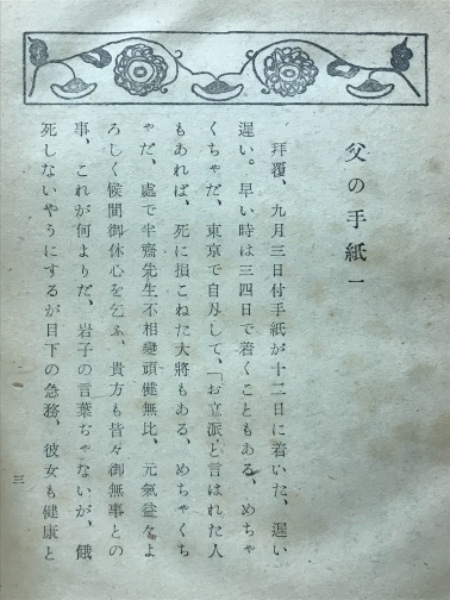 父の手紙一
拜覆、九月三日付手紙が十二日に着いた、遲い
遲い。早い時は三四日で着くこともある、めちゃ
くちゃだ、東京で自刄して、「お立派」と言はれた人
もあれば、死に損こねた大將もある、めちゃくち
ゃだ、處で半齋先生不相變頑健無比、元氣益々よ
ろしく候間御休心を乞ふ、貴方も皆々御無事との
事、これが何よりだ、岩子の言葉ぢゃないが、餓
死しないやうにするが目下の急務、彼女も健康と
三